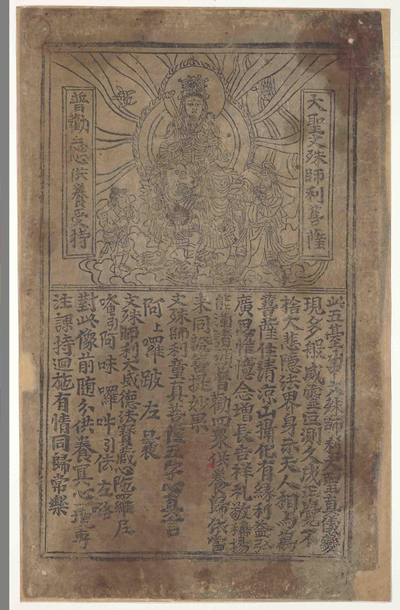 大聖文殊師利菩薩
普勸志心供養受持
此五臺山中文殊師利大聖真儀變
現多般威靈叵測久成正覺不
捨大悲隱法界身示天人相与萬
菩薩住清涼山攝化有緣利益弘
廣思惟憶念增長吉祥礼敬稱揚
能滿諸願普勸四眾供養歸依當
來同證菩提妙果
文殊師利童真菩薩五字心真言
阿上囉跛左曩
文殊師利大威德法寶藏心陁羅尼
唵引阿味囉吽引佉左咯
對此像前隨分供養冥心一境專
注課持迴施有情同歸常樂